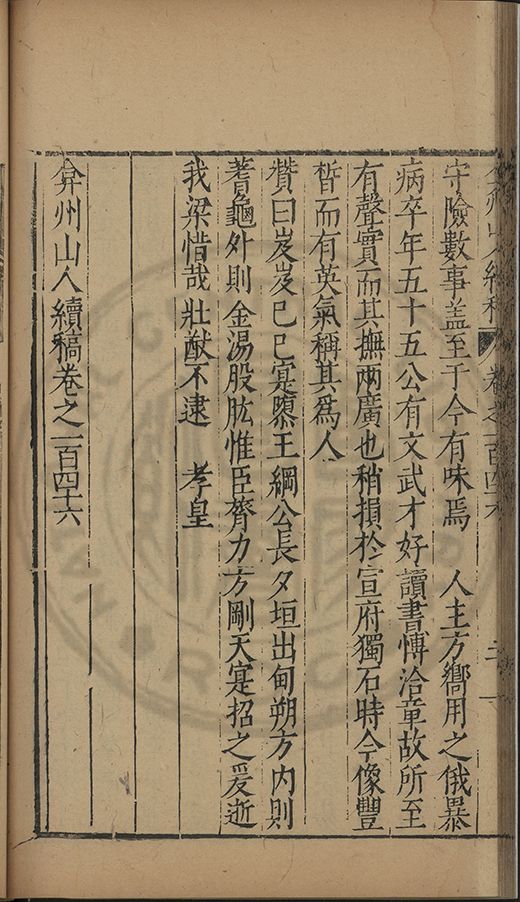 弇州山人續稿 卷之一百四十六 二十一
守險數事蓋至于今有味焉 人主方嚮用之俄暴
病卒年五十五公有文武才好讀書愽洽章故所至
有聲實而其撫兩廣也稍損於宣府獨石時今像豐
晳而有英氣稱其為人
贊曰岌岌己巳寔隳王綱公長夕垣出甸朔方內則
蓍龜外則金湯股肱惟臣膂力方剛天寔招之爰逝
我梁惜哉壯猷不逮 孝皇
弇州山人續稿卷之一百四十六